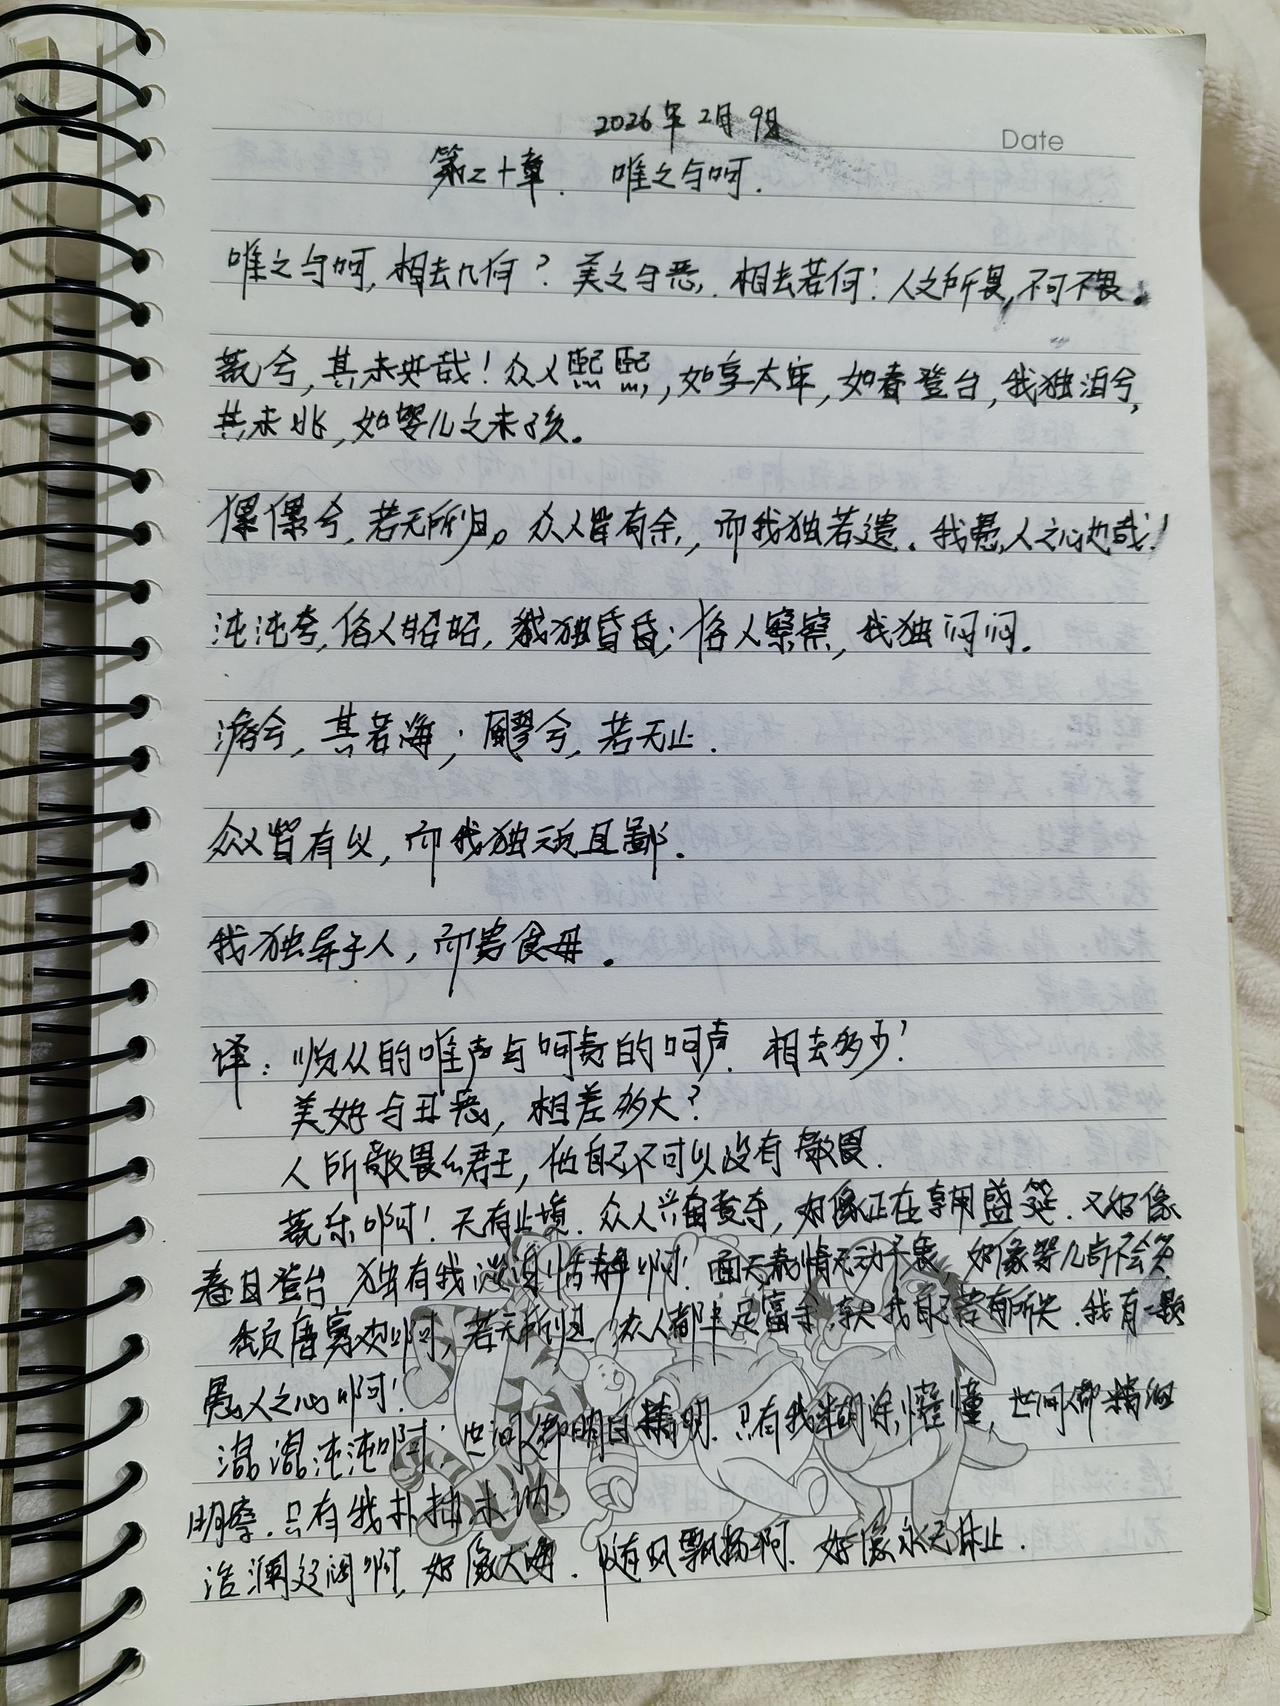 2026年2月9日
Date
第二十章. 唯之与呵.
唯之与呵,相去几何?美之与恶,相去若何?人之所畏,不可不畏。
荒兮,其未央哉!众人熙熙,如享太牢,如春登台,我独泊兮,
其未兆,如婴儿之未孩。
儽儽兮,若无所归。众人皆有余,而我独若遗.我愚人之心也哉!
沌沌兮,俗人昭昭,我独昏昏;俗人察察,我独闷闷.
澹兮,其若海;飂兮,若无止.
众人皆有以,而我独顽且鄙.
我独异于人,而贵食母.
译:顺从的唯声与呵责的呵声.相去多少?
美好与丑恶,相差多大?
人所敬畏的君王,他自己不可以没有敬畏.
荒乐啊!无有止境.众人兴奋,好像正在享用盛筵.又好像
春日登台 独有我淡泊恬静啊!面无表情无动于衷,好像婴儿尚不会笑
颓唐寡欢啊,若无所归.众人都丰足富余,我自己若有所失.我有一颗
愚人之心啊!
混混沌沌啊!世间人都明白精明.只有我糊涂懵懂,世间人都精细
明察.只有我朴拙木讷.
浩澜辽阔啊,好像大海.随有风飘扬啊.好像永无休止.